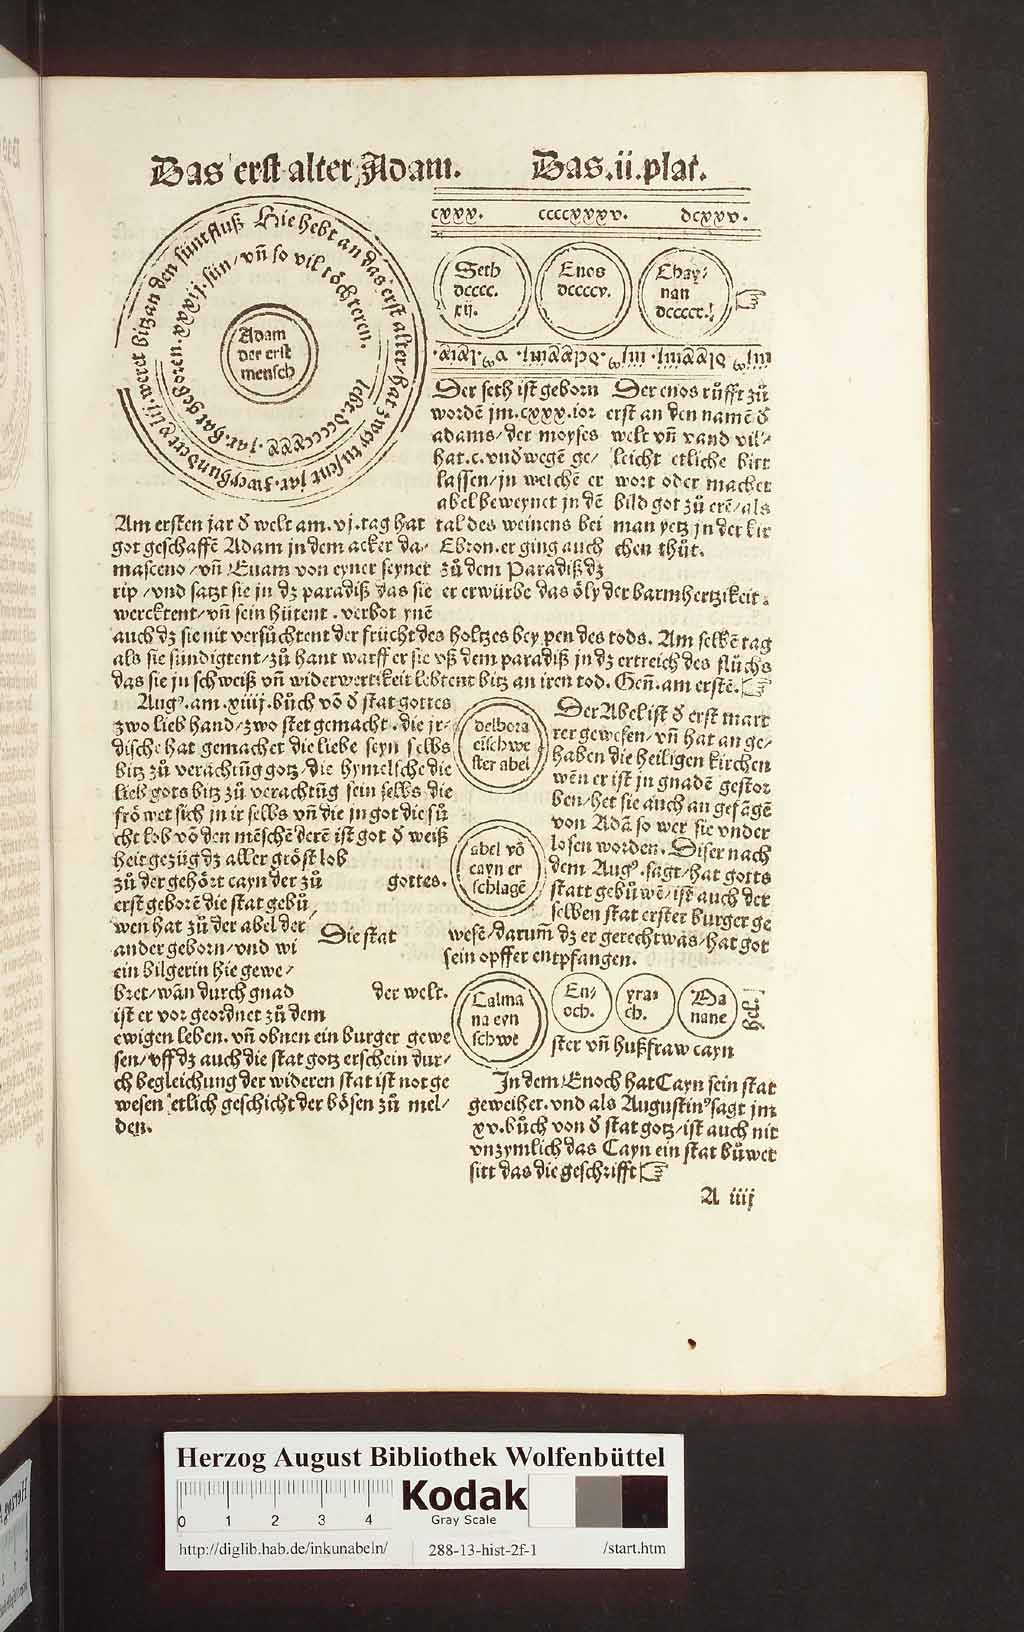 Das erst alter Adam. Das .ii. plat.
cxxx. ccccxxxv. dcxxv.
Hie hebt an das erst alter / hat zwey tusent jar. zweyhundert xlij. weret bitz an den süntfluß
lebt. dccccxxx. jar. hat geboren. xxxij. sün / vñ so vil töchteren.
Adam
der erst
mensch
Seth
dcccc.
xij.
Enos
dccccv.
Chay⸗
nan
dccccx.
Der seth ist geborn
wordẽ jm. cxxx. ior
adams / der moyses
hat. c. vnd wegẽ ge⸗
lassen / jn welchẽ er
abel beweynet jn dẽ
tal des weinens bei
Ebron. er ging auch
zů dem Paradiß dz
er erwürbe das öly der barmhertzikeit.
Der enos růfft zů
erst an den namẽ d̕
welt vñ vand vil⸗
leicht etliche bitt
wort oder machet
bild got zů erẽ / als
man yetz jn der kir
chen thůt.
Am ersten jar d̕ welt am. vj. tag hat
got geschaffẽ Adam jn dem acker da⸗
masceno / vñ Euam von eyner seyner
rip / vnd satzt sie jn dz paradiß das sie
wercktent / vñ sein hütent. verbot ynẽ
auch dz sie nit versůchtent der frücht des holtzes bey pen des tods. Am selbẽ tag
als sie sündigtent / zů hant warff er sie vß dem paradiß jn dz ertreich des flůchs
das sie jn schweiß vñ widerwertikeit lebtent bitz an iren tod. Geñ. am erstẽ. ☞
Augꝰ. am. xiiij. bůch võ d̕ stat gottes
zwo lieb hand / zwo stet gemacht. die jr⸗
dische hat gemachet die liebe seyn selbs
bitz zů verachtũg gotz / die hymelsche die
lieb gots bitz zů verachtũg sein selbs die
fröwet sich in ir selbs vñ die jn got die sů
cht lob võ den mẽschẽ derẽ ist got d̕ weiß
heit gezüg dz aller gröst lob
zů der gehört cayn der zů gottes.
erst geborẽ die stat gebů
wen hat zů der abel der Die stat
ander geborn / vnd wi
ein bilgerin hie gewe⸗
bret / wãn durch gnad der welt.
ist er vor geordnet zů dem
ewigen leben. vñ obnen ein burger gewe
sen / vff dz auch die stat gotz erschein dur⸗
ch begleichung der wideren stat ist not ge
wesen etlich geschicht der bösen zů mel⸗
den.
delbora
eĩ schwe
ster abel
abel võ
cayn er
schlagẽ
Der Abel ist d̕ erst mart
rer gewesen / vñ hat an ge⸗
haben die heiligen kirchen
wẽn er ist jn gnadẽ gestor
ben / het sie auch an gefãgẽ
von Adã so wer sie vnder
losen worden. Diser nach
dem Augꝰ. sagt / hat gotts
statt gebůwẽ / ist auch der
selben stat erster burger ge
wesẽ / darum̃ dz er gerecht was / hat got
sein opffer entpfangen.
Calma
na eyn
schwe
En⸗
och.
yra⸗
ch.
Da
nane
ster vñ hußfraw cayn
Jn dem Enoch hat Cayn sein stat
geweihet. vnd als Augustinꝰ sagt jm
xv. bůch von d̕ stat gotz / ist auch nit
vnzymlich das Cayn ein stat bůwet
sitt das die geschrifft ☞
A iiij
Herzog August Bibliothek Wolfenbüttel
0 1 2 3 4
Kodak
Gray Scale
http://diglib.hab.de/inkunabeln/ 288-13-hist-2f-1 /start.htm